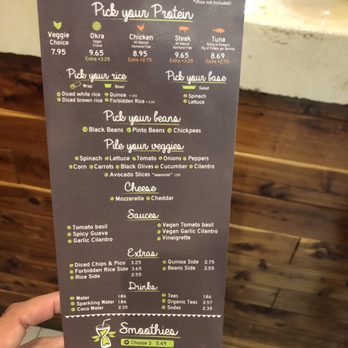 *(Rice not included)
Pick your Protein
Veggie Okra Chicken Steak Tuna
Choice Vegan Choice All Natural Hormone Free All Natural Hormone Free
7.95 9.65 8.95 9.65 8.69
Extra +3.25 Extra +2.75
Pick your rice Pick your base
Wrap Bowl Salad
Diced white rice Quinoa Spinach
Diced brown rice Forbidden Rice Lettuce
Pick your beans
Black Beans Pinto Beans Chickpeas
Pile your veggies
Spinach Lettuce Tomato Onions Peppers
Corn Carrots Black Olives Cucumber Cilantro
Avocado Slices "seasonal" 1.50
Cheese
Mozzarella Cheddar
Sauces
Tomato basil Vegan Tomato basil
Spicy Guava Vegan Garlic Cilantro
Garlic Cilantro Vinaigrette
Extras
Diced Chips & Pico 3.25 Quinoa Side 2.75
Forbidden Rice Side 3.65 Beans Side 2.55
Rice Side 2.55
Drinks
Water 1.86 Teas 1.86
Sparkling Water 1.86 Organic Teas 2.57
Coco Water 2.35 Sodas 2.35
Smoothies
Choose 3 5.49